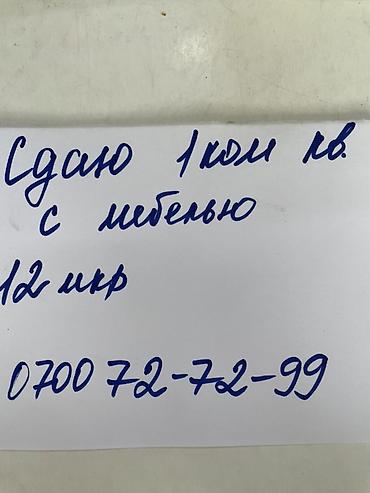 Сдаю 1 ком кв.
с мебелью
12 мкр
0700 72-72-99